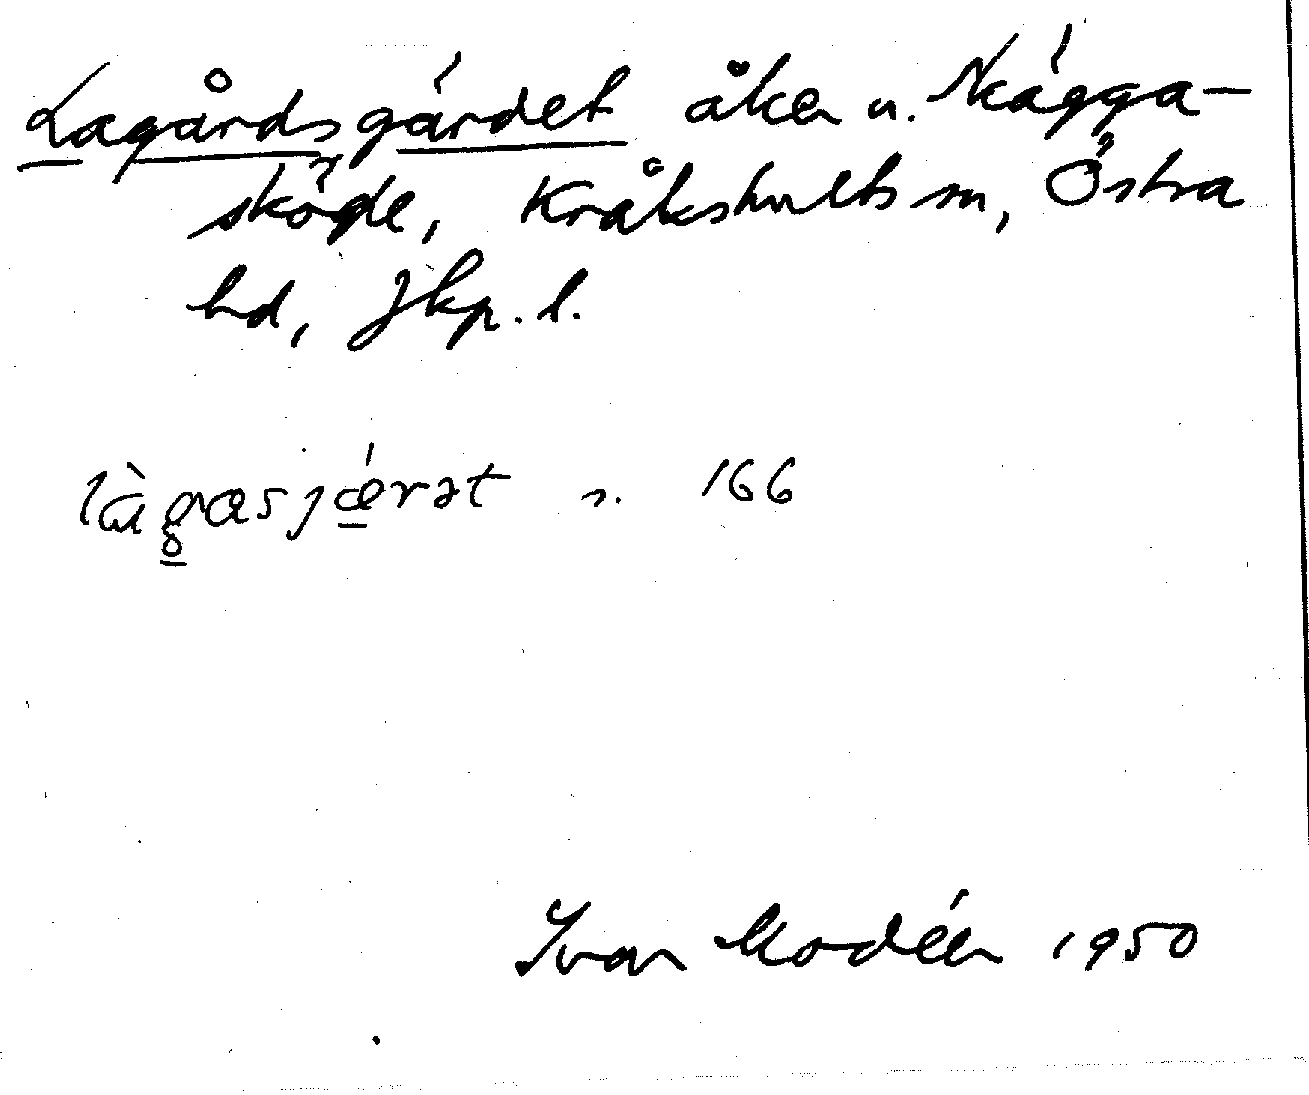 Lagårdsgärdet åker u. Skägga-
skögle, Kråkshults sn, Östra
hd, Jkp. l.
làgasjǽrət n. 166
Ivar Modéer 1950